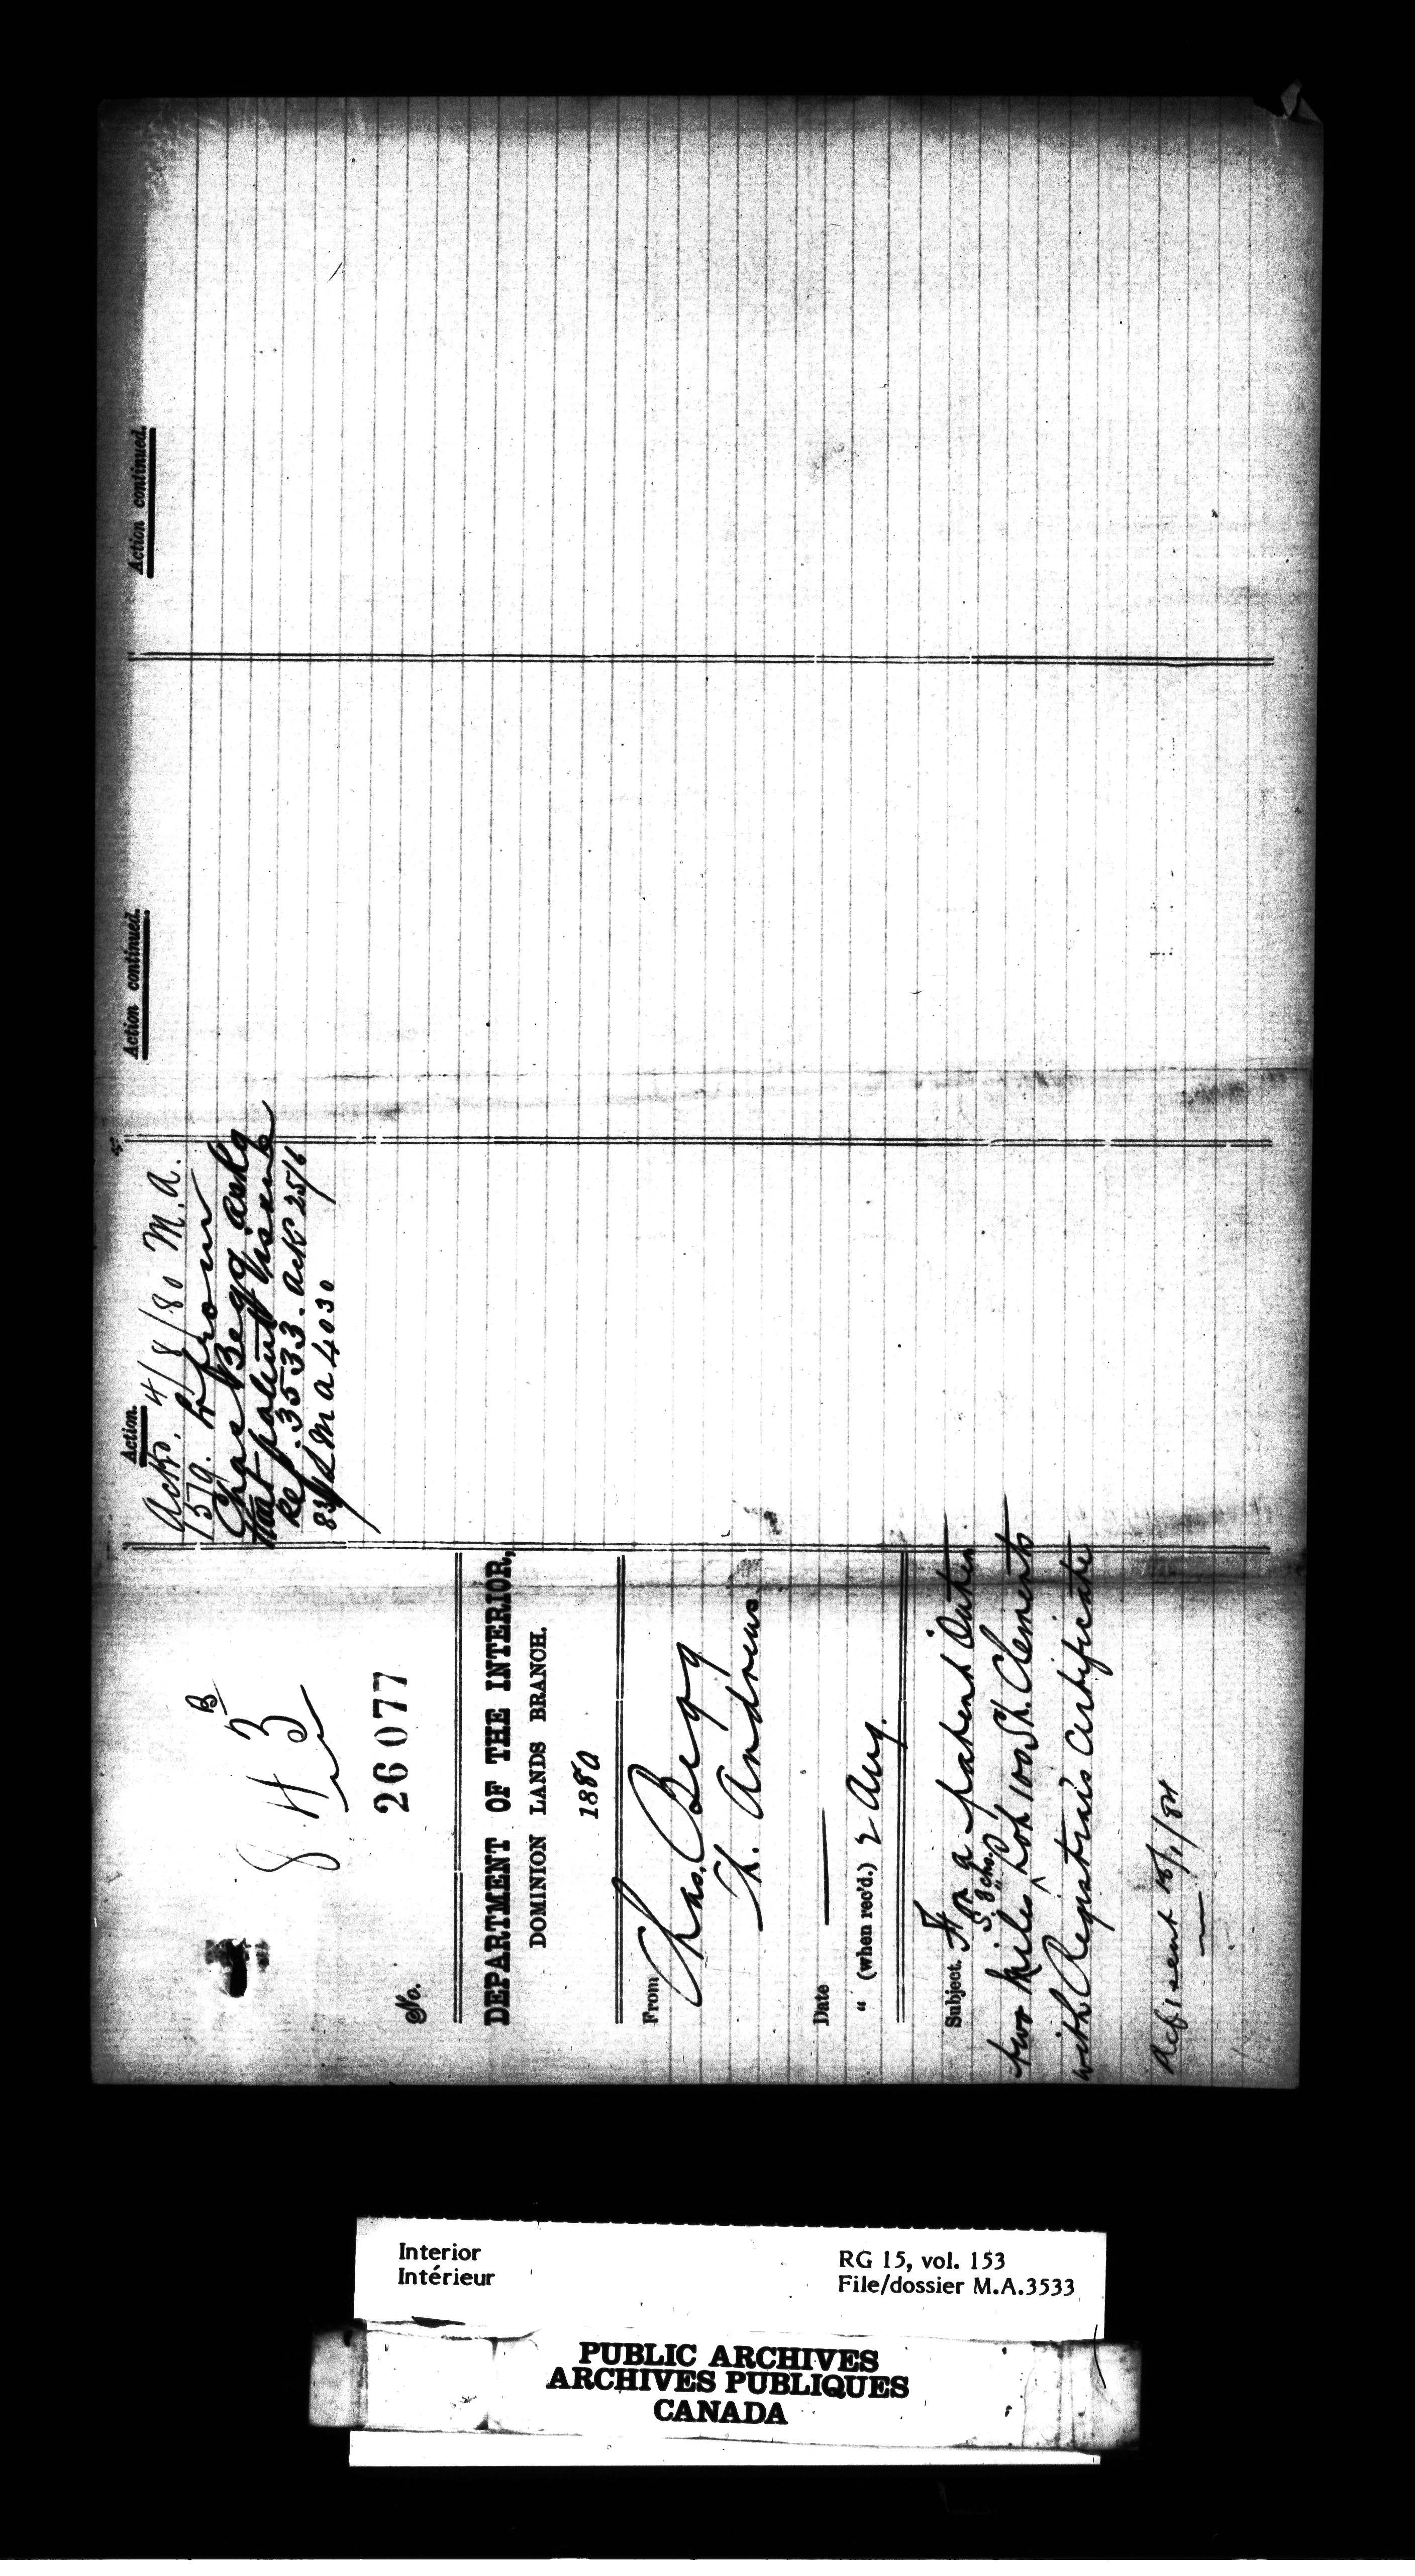 8 H 3 B
No. 26077
DEPARTMENT OF THE INTERIOR,
DOMINION LANDS BRANCH.
1880
From Chas. Begg
St. Andrews
Date
" (when rec'd.) 2 Aug.
Subject. For a patent Outer
two Miles Lot 100 St. Clements
with Registrar's Certificate
sent 16/1/84
Action.
Ack. 4/8/80 M.A.
1579. from
Chas Begg askg
that patent issue
Ref. 3533. ack 25/6
83 M a 4030
Action continued.
Action continued.
Interior
Intérieur
RG 15, vol. 153
File/dossier M.A.3533
PUBLIC ARCHIVES
ARCHIVES PUBLIQUES
CANADA